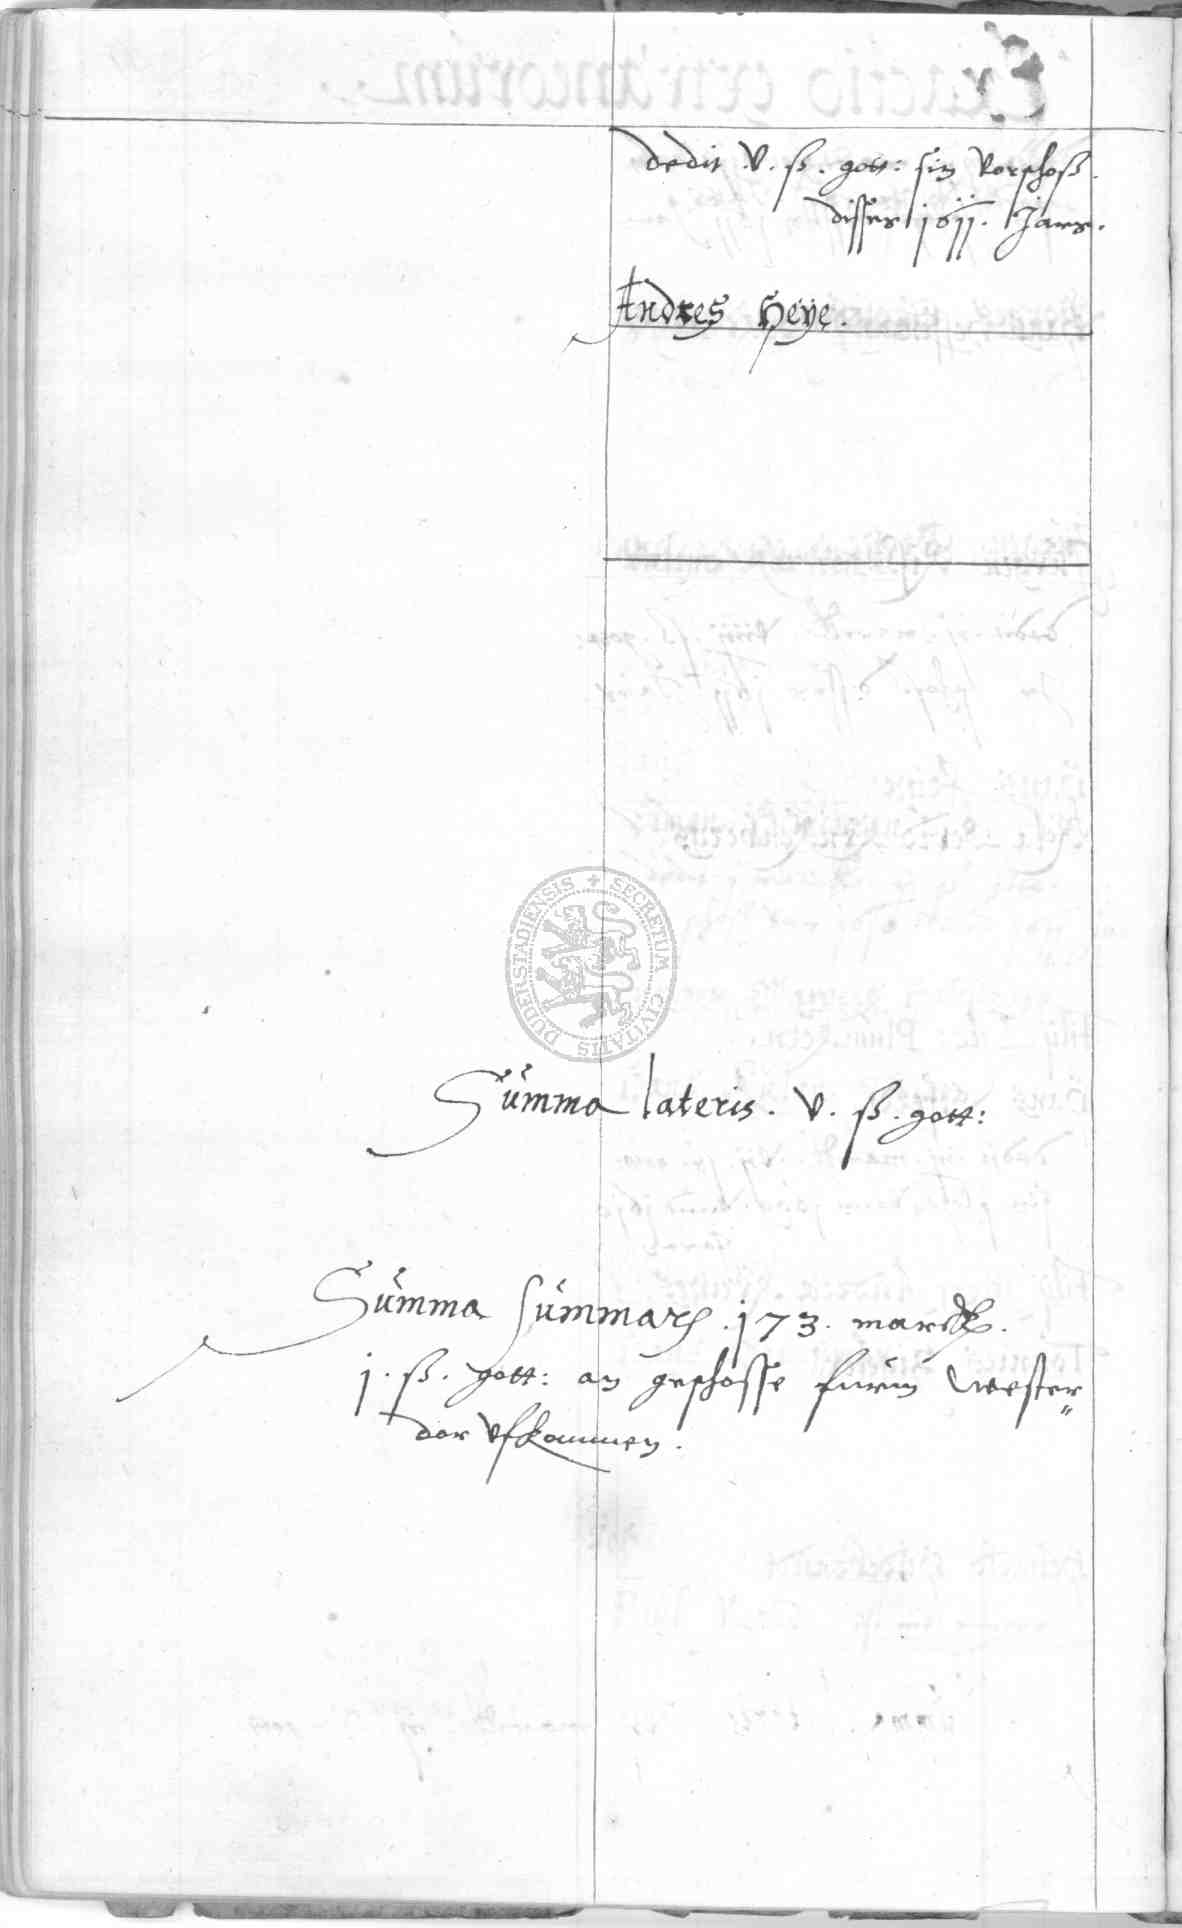 dedit v. ß. gott: sin vorschoß.
disses 1611. Jars.
Andres Heÿe.
SECRETUM CIVITATIS DUDERSTADIENSIS
Summa lateris. v. ß. gott:
Summa summarum .173. marck.
j. ß. gott: an geschosse fürm Wester„
dor ufkommen.